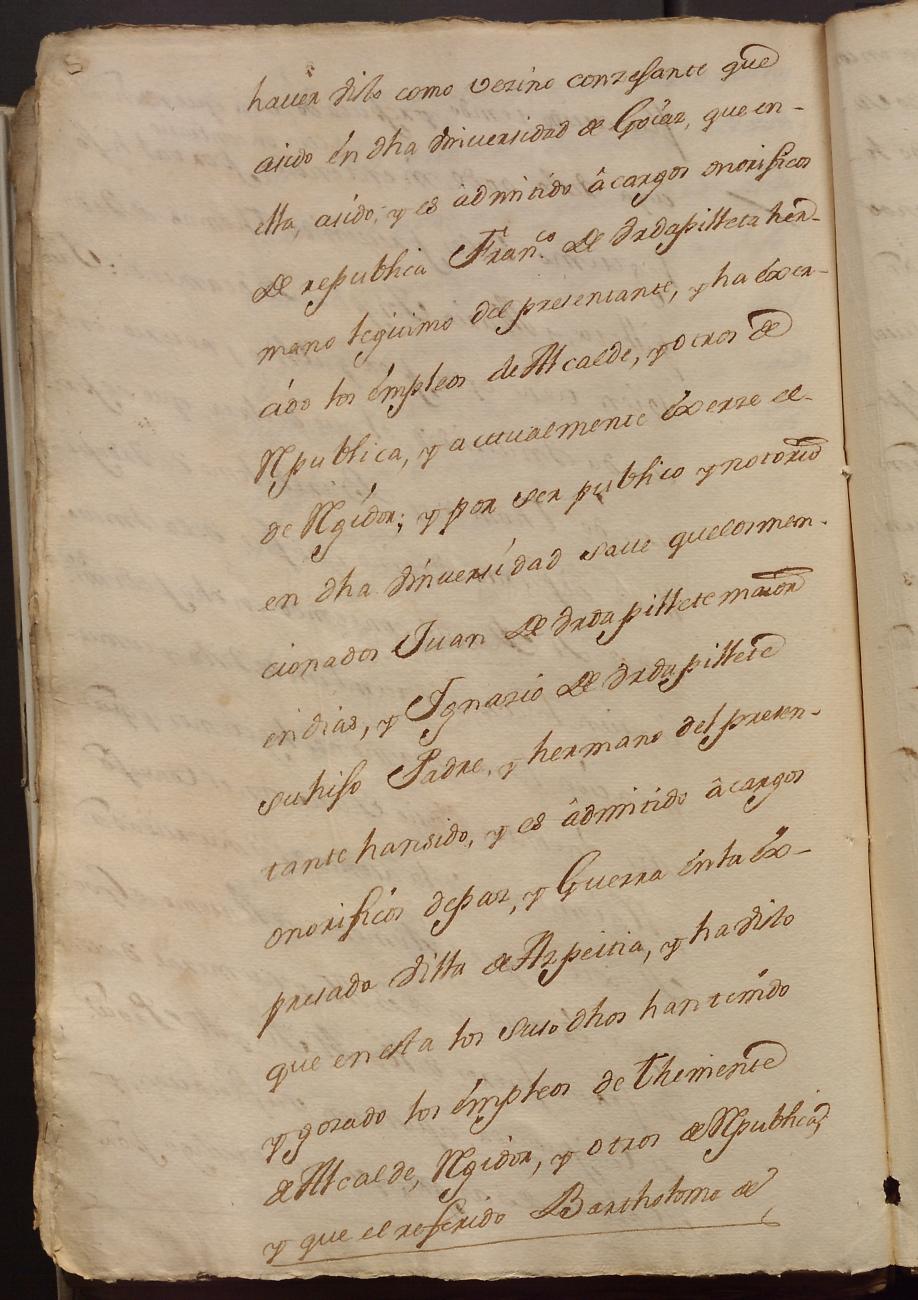 hauer visto como vezino conzesante que
asido én dha Vniuersidad de Goiaz, que en-
ella, asido, y es âdmitido â cargos onorificos
de republica Fran.co de Vrdapilleta her-
mano legitimo del presentante, y ha éxer-
cido los émpleos de Alcalde, y otros de
Republica, y actualmente éxerze el-
de Regidor; y por ser publico y notorio
en dha Vniuersidad saue quelos men-
cionados Juan de Vrdapillete maior
en dias, y Ygnazio de Vrdapillete
su hijo Padre, y hermano del presen-
tante han sido, y es âdmitido â cargos
onorificos de paz, y Guerra én la éx-
presado Villa de Azpeitia, y ha visto
que en esta los suso dhos han tenido
y gozado los émpleos de Theniente
de Alcalde, Regidor, y otros de Republica,
y que el referido Bartholome de